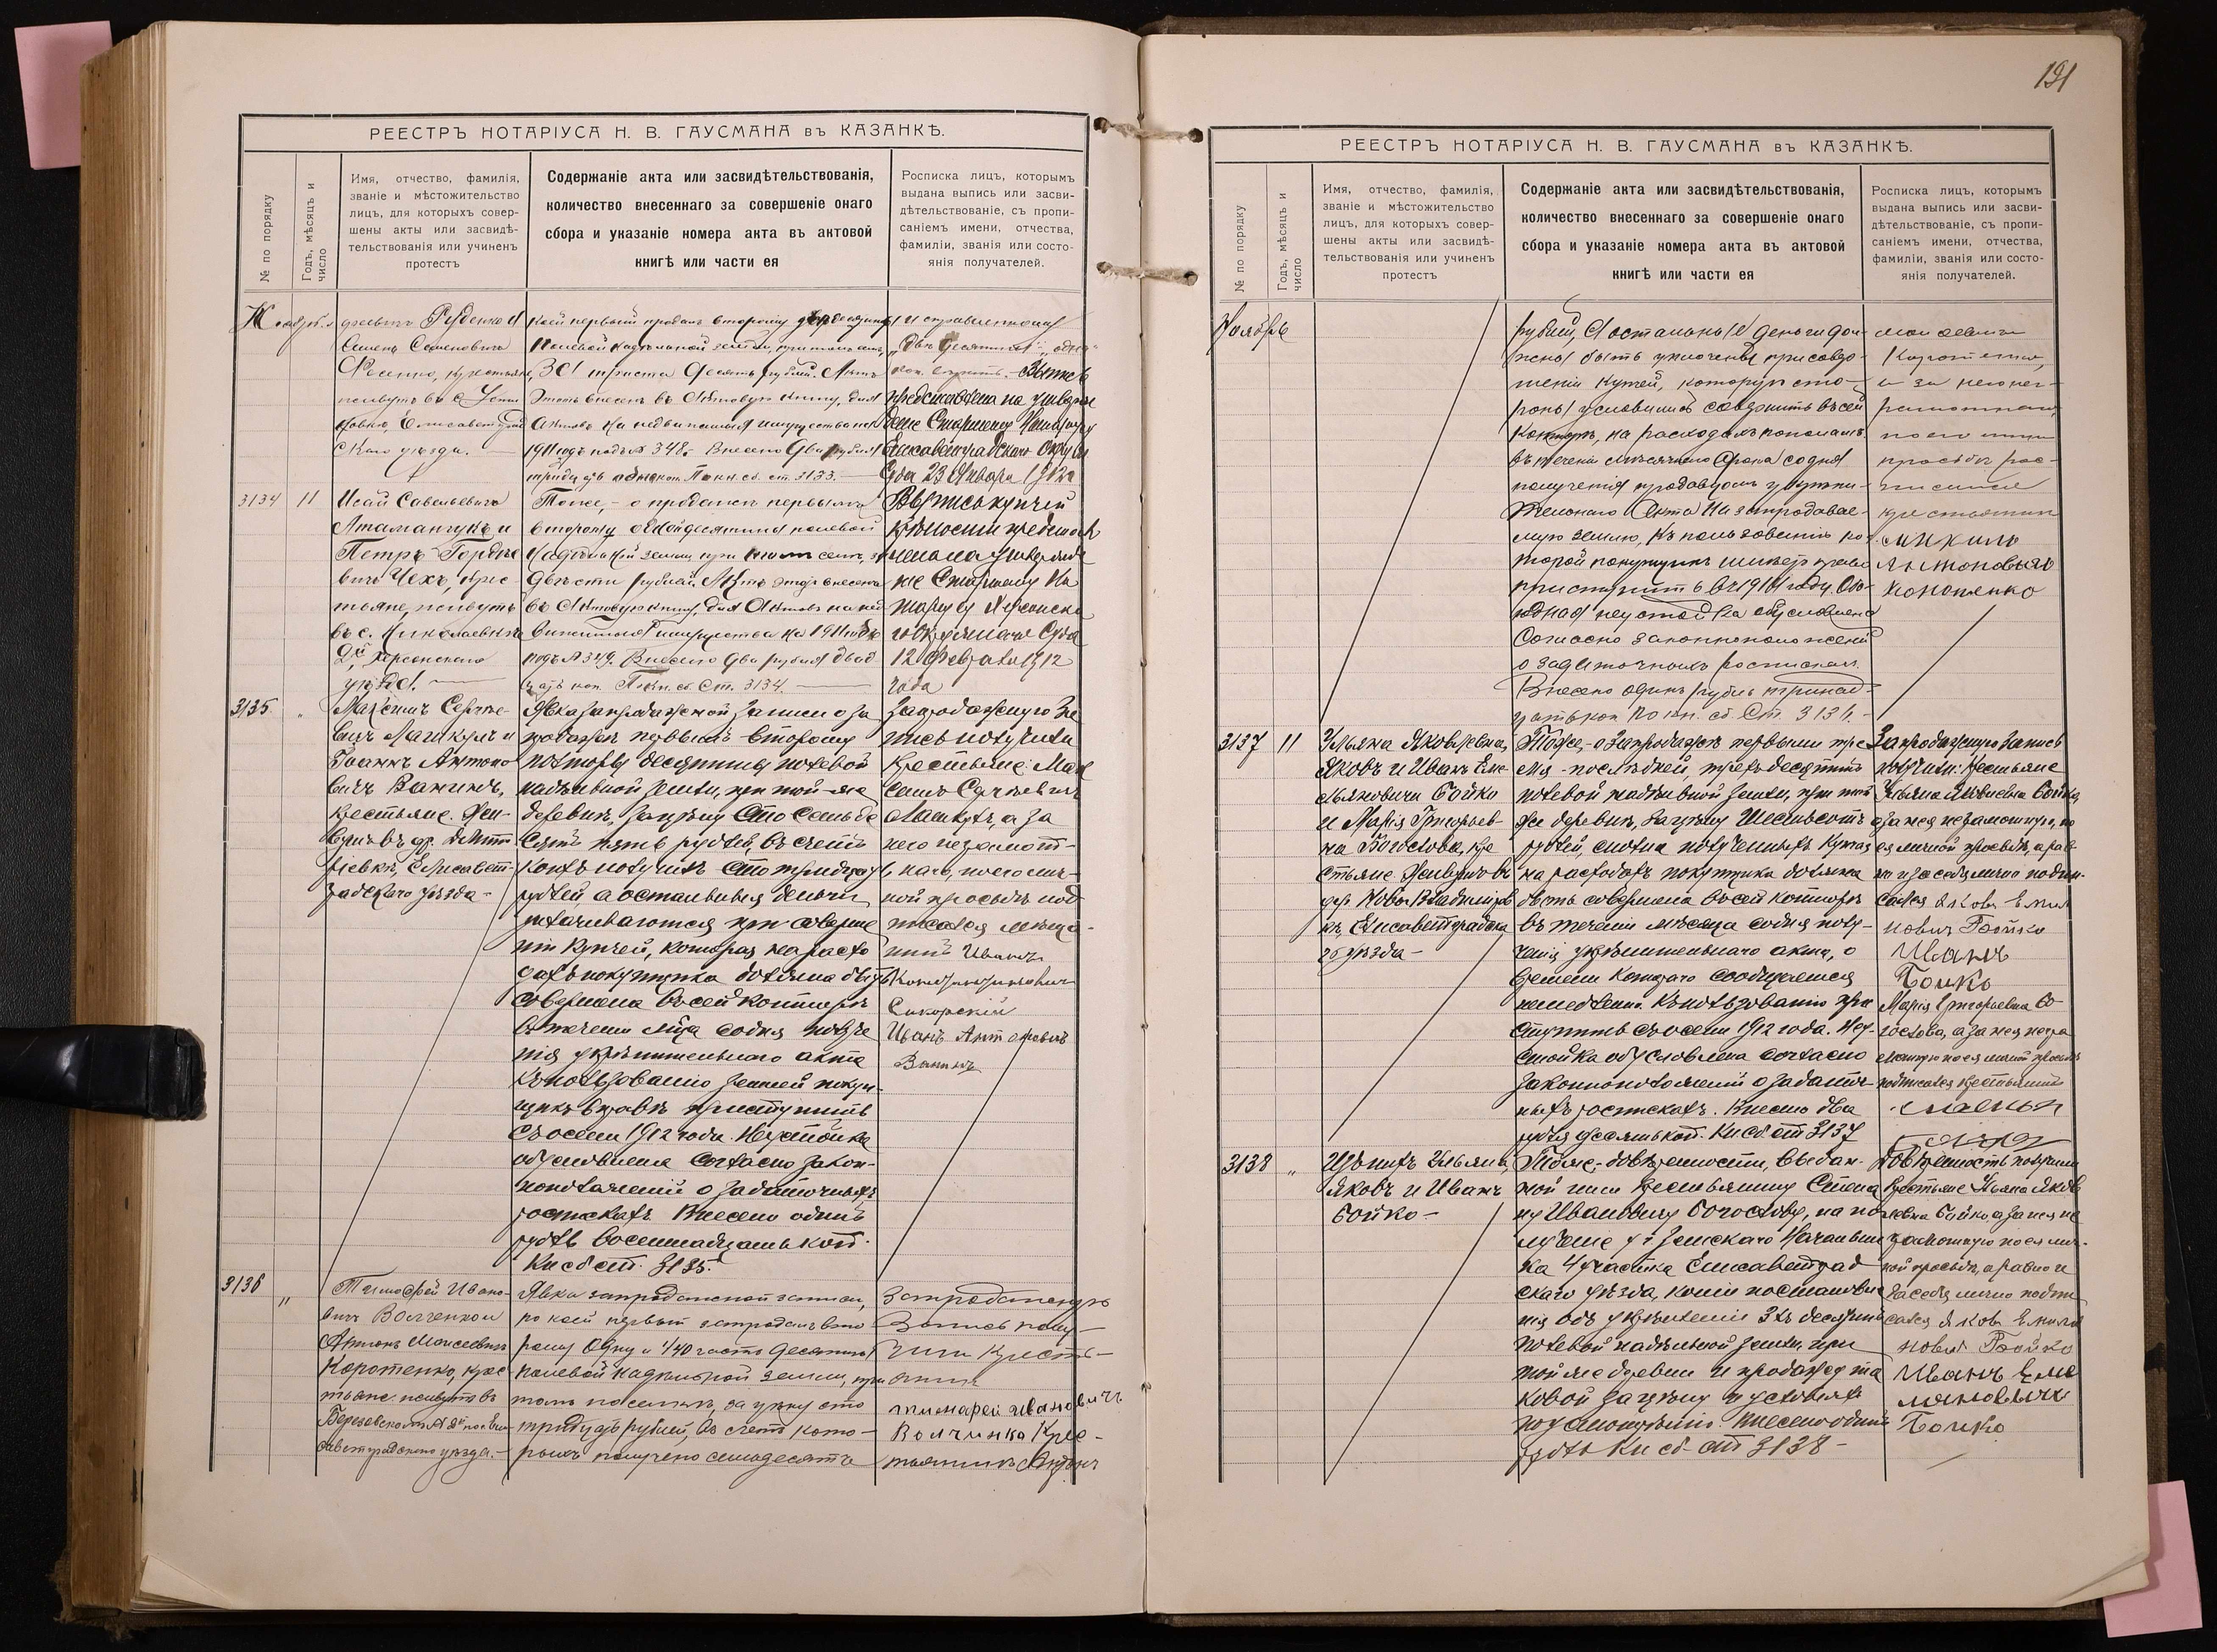 РЕЕСТРЪ НОТАРІУСА Н. В. ГАУСМАНА въ КАЗАНКѢ.
№ по порядку
Годъ, мѣсяцъ и
число
Имя, отчество, фамилія,
званіе и мѣстожительство
лицъ, для которыхъ совер-
шены акты или засвидѣ-
тельствованія или учиненъ
протестъ
Содержаніе акта или засвидѣтельствованія,
количество внесеннаго за совершеніе онаго
сбора и указаніе номера акта въ актовой
книгѣ или части ея
Росписка лицъ, которымъ
выдана выпись или засви-
дѣтельствованіе, съ пропи-
саніемъ имени, отчества,
фамиліи, званія или состо-
янія получателей.
Ноября
Руденко и
Семенъ Семеновичъ
крестьяне,
живутъ въ с.
Елисаветград
скаго уѣзда.
коей первый продалъ второму
полевой надѣльной земли, при томъ же,
за триста десять рублей. Актъ
этотъ внесенъ въ Актовую книгу, для
Актовъ на недвижимыя имущества на
1911 годъ подъ № 348. Внесено два рубля
тридцать одна коп. По кн. сб. ст. 3133.
и справленному
"двѣ десятины"
вѣрить. Выпись
представлена на утверж
деніе Старшему Нотаріусу
Елисаветградскаго Окруж
Суда 23 Января 1912 г
3134
11
Исай Савельевичъ
Атаманчукъ и
Петръ Гордѣе
вичъ Чехъ, крес
тьяне, живутъ
въ с. Николаевкѣ
2й, Херсонскаго
уѣзда.
Тоже, - о продажѣ первымъ
второму одной десятины полевой
надѣльной земли, при томъ селѣ, за
двѣсти рублей. Актъ этотъ внесенъ
въ Актовую книгу, для Актовъ на нед
вижимыя имущества на 1911 годъ
подъ № 349. Внесено два рубля двад
цать коп. По кн. сб. Ст. 3134.
Выпись купчей
крѣпости представ
лена на утвержде
ніе Старшему Но
таріусу Херсонска
го Окружнаго Суда
12 Февраля 1912
года
3135
"
Максимъ Сергѣе-
вичъ Машкулъ и
Іоаннъ Антоно
вичъ Ванинъ,
крестьяне. Жи-
вутъ въ др. Дмит
ріевкѣ, Елисавет-
градскаго уѣзда -
Явка запродажной записи о за
продажѣ первымъ второму
полторы десятины полевой
надѣльной земли, при той-же
деревнѣ, за цѣну Сто семьде
сятъ пять рублей, въ счетъ
коихъ получилъ сто тридцать
рублей а остальныя деньги
уплачиваются при соверше
ніи купчей, которая на расхо
дахъ покупщика должна быть
совершена въ сей конторѣ
въ теченіи мѣсяца со дня получе
нія укрѣпительнаго акта
Къ пользованію землей покуп-
щикъ вправѣ приступить
съ осени 1912 года. Неустойка
обусловлена согласно закон-
ноположеній о задаточныхъ
роспискахъ. Внесено одинъ
рубль восемнадцать коп.
Кн сб ст. 3135.
Запродажную за
пись получили
крестьяне: Мак
симъ Сергѣевичъ
Машкулъ, а за
него неграмот-
наго, по его лич-
ной просьбѣ под
писался мѣща-
нинъ Иванъ
Сикорскій
Иванъ Антоновичъ
Ванинъ
3136
"
Тимофей Ивано-
вичъ Волченко и
Антонъ Моисеевичъ
Коротенко, крес
тьяне. живутъ въ
Елисаветградскаго уѣзда. -
Явка запродажной записи,
по коей первый запродалъ вто
рому одну и 1/40 часть десятины
полевой надѣльной земли, при
томъ поселкѣ, за цѣну сто
тридцать рублей, въ счетъ кото-
рыхъ получено семьдесятъ
Запродажную
Запись полу-
чили кресть-
яне
тимофей иванович
Волчинко Крес-
тьянинъ Антонъ
191
РЕЕСТРЪ НОТАРІУСА Н. В. ГАУСМАНА въ КАЗАНКѢ.
№ по порядку
Годъ, мѣсяцъ и
число
Имя, отчество, фамилія,
званіе и мѣстожительство
лицъ, для которыхъ совер-
шены акты или засвидѣ-
тельствованія или учиненъ
протестъ
Содержаніе акта или засвидѣтельствованія,
количество внесеннаго за совершеніе онаго
сбора и указаніе номера акта въ актовой
книгѣ или части ея
Росписка лицъ, которымъ
выдана выпись или засви-
дѣтельствованіе, съ пропи-
саніемъ имени, отчества,
фамиліи, званія или состо-
янія получателей.
Ноябрь
рублей, а остальныя деньги дол-
жны быть уплочены при совер-
шеніи купчей, которую сто-
роны условились совершить въ сей
Конторѣ, на расходахъ пополамъ
въ теченіи мѣсячнаго срока со дня
полученія продавцомъ укрѣпи-
тельнаго Акта на запродавае-
мую землю, къ пользованію ко-
торой покупщикъ имѣетъ право
приступить въ 191 году.
неустойка обусловлена
Согласно законоположеній
о задаточныхъ роспискахъ.
Внесено одинъ рубль тринад-
цать коп По кн. сб. Ст. 3136. -
Моисеевичъ
Коротенко,
а за него нег-
рамотнаго,
по его личной
просьбѣ рос-
писался
крестьянинъ
Михаилъ
Антоновичъ
Кононенко
3137
11
Ульяна Яковлевна,
Яковъ и Иванъ Еме-
льяновичи Бойко
и Марія Григорьев-
на Богослова, кре
стьяне. Живутъ въ
дер. Ново-Владимиров
кѣ, Елисаветградска
го уѣзда -
Тоже, - о запродажѣ первыми тре
мя - послѣдней, трехъ десятинъ
полевой надѣльной земли, при той
же деревнѣ, за цѣну Шестьсотъ
рублей, сполна полученныхъ Купчая
на расходахъ покупщика должна
быть совершена въ сей конторѣ
въ теченіи мѣсяца со дня полу-
ченія укрѣпительнаго акта, о
времени котораго сообщается
немедленно. Къ пользованію при
ступить съ осени 1912 года. Неу-
стойка обусловлена согласно
законноположеній о задаточ-
ныхъ роспискахъ. Внесено два
рубля десять коп. Кн сб. ст 3137
Запродажную запись
получили: крестьяне
Ульяна Яковлевна Бойко,
а за нея неграмотную, по
ея личной просьбѣ, а рав-
но и за себя лично подпи-
сался Яковъ Емил
новичъ Бойко
Иванъ
Бойко
Марія Григорьевна Бо-
гослова, а за нея негра
мотную по ея личной просьбѣ
подписался крестьянинъ
3138
"
Ихъ-нихъ Ульяна,
Яковъ и Иванъ
Бойко -
Тоже, - довѣренности, выдан-
ной ими крестьянину Степа
ну Ивановичу Богослову, на по-
лученіе у г. Земскаго Начальни
ка 4 участка Елисаветград
скаго уѣзда, копіи постановле
нія объ укрѣпленіи 3хъ десятинъ
полевой надѣльной земли, при
той же деревнѣ и продажу та
ковой за цѣну и условія
по усмотрѣнію. Внесено одинъ
рубль Кн сб. ст 3138 -
Довѣренность получили
крестьяне: Ульяна Яков
левна Бойко, а за нея не
грамотную по ея лич-
ной просьбѣ, а равно и
за себя лично подпи
сался Яковъ Емилья
новичъ Бойко
Иванъ Еме
лянович
Бойко